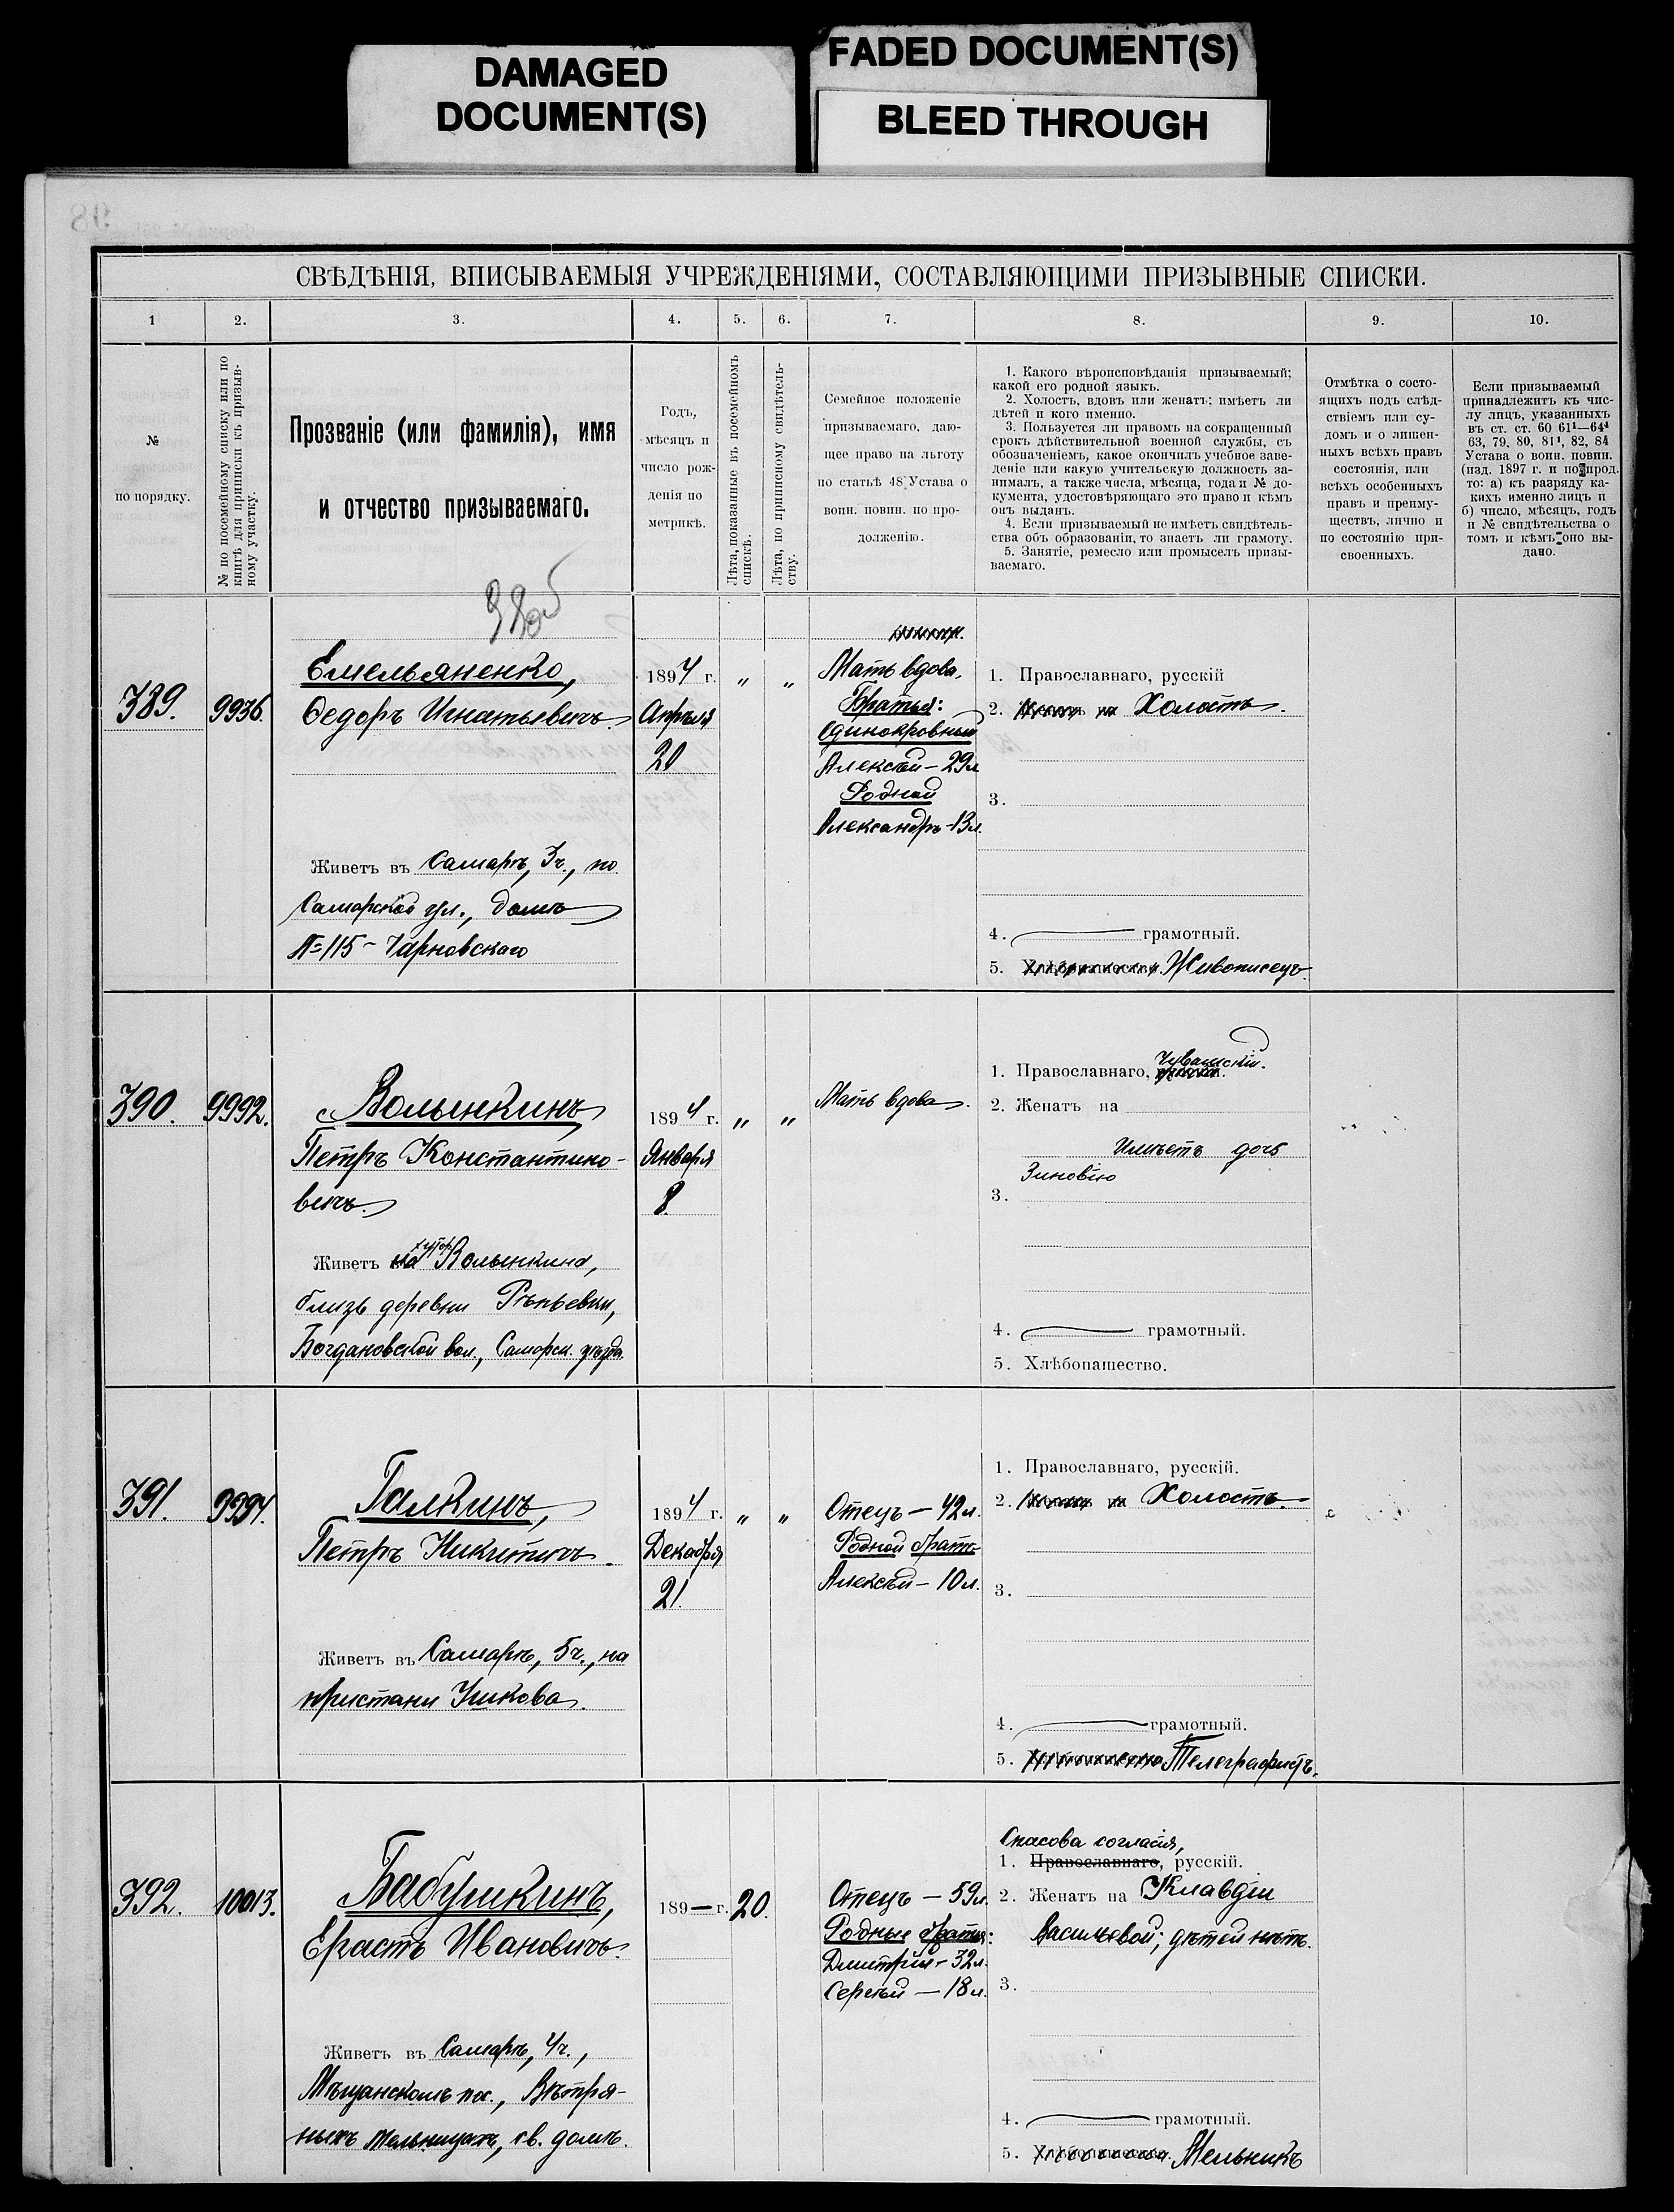 DAMAGED
DOCUMENT(S)
FADED DOCUMENT(S)
BLEED THROUGH
98
СВѢДѢНІЯ, ВПИСЫВАЕМЫЯ УЧРЕЖДЕНІЯМИ, СОСТАВЛЯЮЩИМИ ПРИЗЫВНЫЕ СПИСКИ.
1 2. 3. 4. 5. 6. 7. 8. 9. 10.
№
по порядку.
№ по посемейному списку или по
книгѣ для приписки къ призыв-
ному участку.
Прозваніе (или фамилія), имя
и отчество призываемаго.
Годъ,
мѣсяцъ и
число рож-
денія по
метрикѣ.
Лѣта, показанные въ посемейномъ
спискѣ.
Лѣта, по приписному свидѣтель-
ству.
Семейное положеніе
призываемаго, даю-
щее право на льготу
по статьѣ 48 Устава о
воин. повин. по про-
долженію.
1. Какого вѣроисповѣданія призываемый;
какой его родной языкъ.
2. Холостъ, вдовъ или женатъ; имѣетъ ли
дѣтей и кого именно.
3. Пользуется ли правомъ на сокращенный
срокъ дѣйствительной военной службы, съ
обозначеніемъ, какое окончилъ учебное заве-
деніе или какую учительскую должность за-
нималъ, а также числа, мѣсяца, года и № до-
кумента, удостовѣряющаго это право и кѣмъ
онъ выданъ.
4. Если призываемый не имѣетъ свидѣтель-
ства объ образованіи, то знаетъ ли грамоту.
5. Занятіе, ремесло или промыселъ призы-
ваемаго.
Отмѣтка о состо-
ящихъ подъ слѣд-
ствіемъ или су-
домъ и о лишен-
ныхъ всѣхъ правъ
состоянія, или
всѣхъ особенныхъ
правъ и преиму-
ществъ, лично и
по состоянію при-
своенныхъ.
Если призываемый
принадлежитъ къ чис-
лу лицъ, указанныхъ
въ ст. ст. 60 61¹—64⁴
63, 79, 80, 81¹, 82, 84
Устава о воин. повин.
(изд. 1897 г. и по прод.
то: а) къ разряду ка-
кихъ именно лицъ и
б) число, мѣсяцъ, годъ
и № свидѣтельства о
томъ и кѣмъ оно вы-
дано.
389.
9936.
Емельяненко,
Ѳедоръ Игнатьевичъ
Живетъ въ Самарѣ, 3ч., по
Самарской ул., домъ
№ 115 - Чарновскаго
1894 г.
Апрѣля
20
„ „
Мать вдова.
Братья:
Единокровный
Алексѣй - 29л
Родной
Александръ - 13л.
1. Православнаго, русскій
2. Холостъ.
3.
4. грамотный.
5. Живописецъ.
390.
9992.
Волынкинъ
Петръ Константино-
вичъ.
Живетъ на хутор. Волынкина,
близъ деревни Рѣпьевки,
Богдановской вол., Самарск. уѣзда
1894 г.
Января
8.
„ „
Мать вдова.
1. Православнаго, Чувашскій.
2. Женатъ на
Имѣетъ дочь
Зиновію
3.
4. грамотный.
5. Хлѣбопашество.
391.
9994.
Галкинъ,
Петръ Никитичъ.
Живетъ въ Самарѣ, 5ч., на
пристани Ушкова.
1894 г.
Декабря
21.
„ „
Отецъ — 42л.
Родной братъ
Алексѣй — 10л.
1. Православнаго, русскій.
2. Холостъ.
3.
4. грамотный.
5. Телеграфистъ.
392.
10013.
Бабушкинъ,
Ерастъ Ивановичъ.
Живетъ въ Самарѣ, 4ч.,
Мѣщанскомъ пос., Вѣтря-
ныхъ мельницахъ, св. домъ.
189— г.
20.
Отецъ — 59л.
Родные братья:
Дмитрій - 32л.
Сергѣй — 18л.
Спасова согласія,
1. Православнаго, русскій.
2. Женатъ на Клавдіи
Васильевой; дѣтей нѣтъ.
3.
4. грамотный.
5. Мельникъ